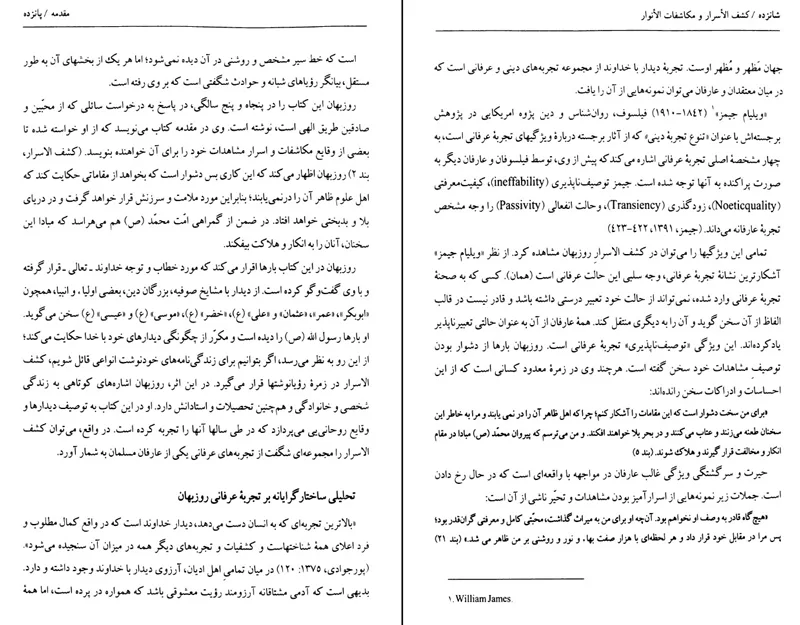 مقدمه / پانزده
است که خط سیر مشخص و روشنی در آن دیده نمی‌شود؛ اما هر یک از بخشهای آن به طور
مستقل، بیانگر رؤیاهای شبانه و حوادث شگفتی است که بر وی رفته است.
روزبهان این کتاب را در پنجاه و پنج سالگی، در پاسخ به درخواست سائلی که از محبّین و
صادقین طریق الهی است، نوشته است. وی در مقدمه کتاب می‌نویسد که از او خواسته شده تا
بعضی از وقایع مکاشفات و اسرار مشاهدات خود را برای آن خواهنده بنویسد. (کشف الاسرار،
بند ۲) روزبهان اظهار می‌کند که این کاری بس دشوار است که بخواهد از مقاماتی حکایت کند که
اهل علوم ظاهر آن را درنمی‌یابند؛ بنابراین مورد ملامت و سرزنش قرار خواهد گرفت و در دریای
بلا و بدبختی خواهد افتاد. در ضمن از گمراهی امّت محمّد (ص) هم می‌هراسد که مبادا این
سخنان، آنان را به انکار و هلاکت بیفکند.
روزبهان در این کتاب بارها اقرار می‌کند که مورد خطاب و توجه خداوند ـ تعالی ـ قرار گرفته
و با وی گفت‌وگو کرده است. از دیدار با مشایخ صوفیه، بزرگان دین، بعضی اولیا، و انبیا، همچون
«ابوبکر»، «عمر»، «عثمان» و «علی» (ع)، «خضر» (ع)، «موسی» (ع) و «عیسی» (ع) سخن می‌گوید.
او بارها رسول الله (ص) را دیده است و مکرّر از چگونگی دیدارهای خود با خدا حکایت می‌کند؛
از این رو به نظر می‌رسد، اگر بتوانیم برای زندگی‌نامه‌های خودنوشت انواعی قائل شویم، کشف
الاسرار در زمرهٔ رؤیانوشتها قرار می‌گیرد. در این اثر، روزبهان اشاره‌های کوتاهی به زندگی
شخصی و خانوادگی و هم‌چنین تحصیلات و استادانش دارد. او در این کتاب به توصیف دیدارها و
وقایع روحانی‌یی می‌پردازد که در طی سالها آنها را تجربه کرده است. در واقع، می‌توان کشف
الاسرار را مجموعه‌ای شگفت از تجربه‌های عرفانی یکی از عارفان مسلمان به شمار آورد.
تحلیلی ساختارگرایانه بر تجربهٔ عرفانی روزبهان
«بالاترین تجربه‌ای که به انسان دست می‌دهد، دیدار خداوند است که در واقع کمال مطلوب و
فرد اعلای همهٔ شناختهاست و کشفیات و تجربه‌های دیگر همه در میزان آن سنجیده می‌شود».
(پورجوادی، ۱۳۷۵: ۱۲۰) در میان تمامی اهل ادیان، آرزوی دیدار با خداوند وجود داشته و دارد.
بدیهی است که آدمی مشتاقانه آرزومند رؤیت معشوقی باشد که همواره در پرده است، اما همهٔ
شانزده / کشف الأسرار و مکاشفات الأنوار
جهان مَظهر و مُظهر اوست. تجربهٔ دیدار با خداوند از مجموعه تجربه‌های دینی و عرفانی است که
در میان معتقدان و عارفان می‌توان نمونه‌هایی از آن را یافت.
«ویلیام جیمز»۱ (۱۸۴۲-۱۹۱۰) فیلسوف، روان‌شناس و دین پژوه امریکایی در پژوهش
برجسته‌اش با عنوان «تنوع تجربهٔ دینی» که از آثار برجسته دربارهٔ ویژگیهای تجربهٔ عرفانی است، به
چهار مشخصهٔ اصلی تجربهٔ عرفانی اشاره می‌کند که پیش از وی، توسط فیلسوفان و عارفان دیگر به
صورت پراکنده به آنها توجه شده است. جیمز توصیف‌ناپذیری (ineffability)، کیفیت‌معرفتی
(Noeticquality)، زودگذری (Transiency)، وحالت انفعالی (Passivity) را وجه مشخص
تجربهٔ عارفانه می‌داند. (جیمز، ۱۳۹۱، ۴۲۲-۴۲۳)
تمامی این ویژگیها را می‌توان در کشف الاسرارِ روزبهان مشاهده کرد. از نظر «ویلیام جیمز»
آشکارترین نشانهٔ تجربهٔ عرفانی، وجه سلبی این حالت عرفانی است (همان). کسی که به صحنهٔ
تجربهٔ عرفانی وارد شده، نمی‌تواند از حالت خود تعبیر درستی داشته باشد و قادر نیست در قالب
الفاظ از آن سخن گوید و آن را به دیگری منتقل کند. همهٔ عارفان از آن به عنوان حالتی تعبیرناپذیر
یاد کرده‌اند. این ویژگی «توصیف‌ناپذیری» تجربهٔ عرفانی است. روزبهان بارها از دشوار بودن
توصیفِ مشاهدات خود سخن گفته است. هرچند وی در زمرهٔ معدود کسانی است که از این
احساسات و ادراکات سخن رانده‌اند:
«برای من سخت دشوار است که این مقامات را آشکار کنم؛ چرا که اهل ظاهر آن را در نمی یابند و مرا به خاطر این
سخنان طعنه می‌زنند و عتاب می‌کنند و در بحر بلا خواهند افکند. و من می‌ترسم که پیروان محمّد (ص) مبادا در مقام
انکار و مخالفت قرار گیرند و هلاک شوند. (بند ۵)
حیرت و سرگشتگی ویژگی غالب عارفان در مواجهه با واقعه‌ای است که در حال رخ دادن
است. جملات زیر نمونه‌هایی از اسرارآمیز بودن مشاهدات و تحیّر ناشی از آن است:
«هیچ‌گاه قادر به وصف او نخواهم بود. آن‌چه او برای من به میراث گذاشت، محبّتی کامل و معرفتی گران‌قدر بود؛
پس مرا در مقابل خود قرار داد و هر لحظه‌ای با هزار صفت بهاء و نور و روشنی بر من ظاهر می شد.» (بند ۲۱)
۱. William James.